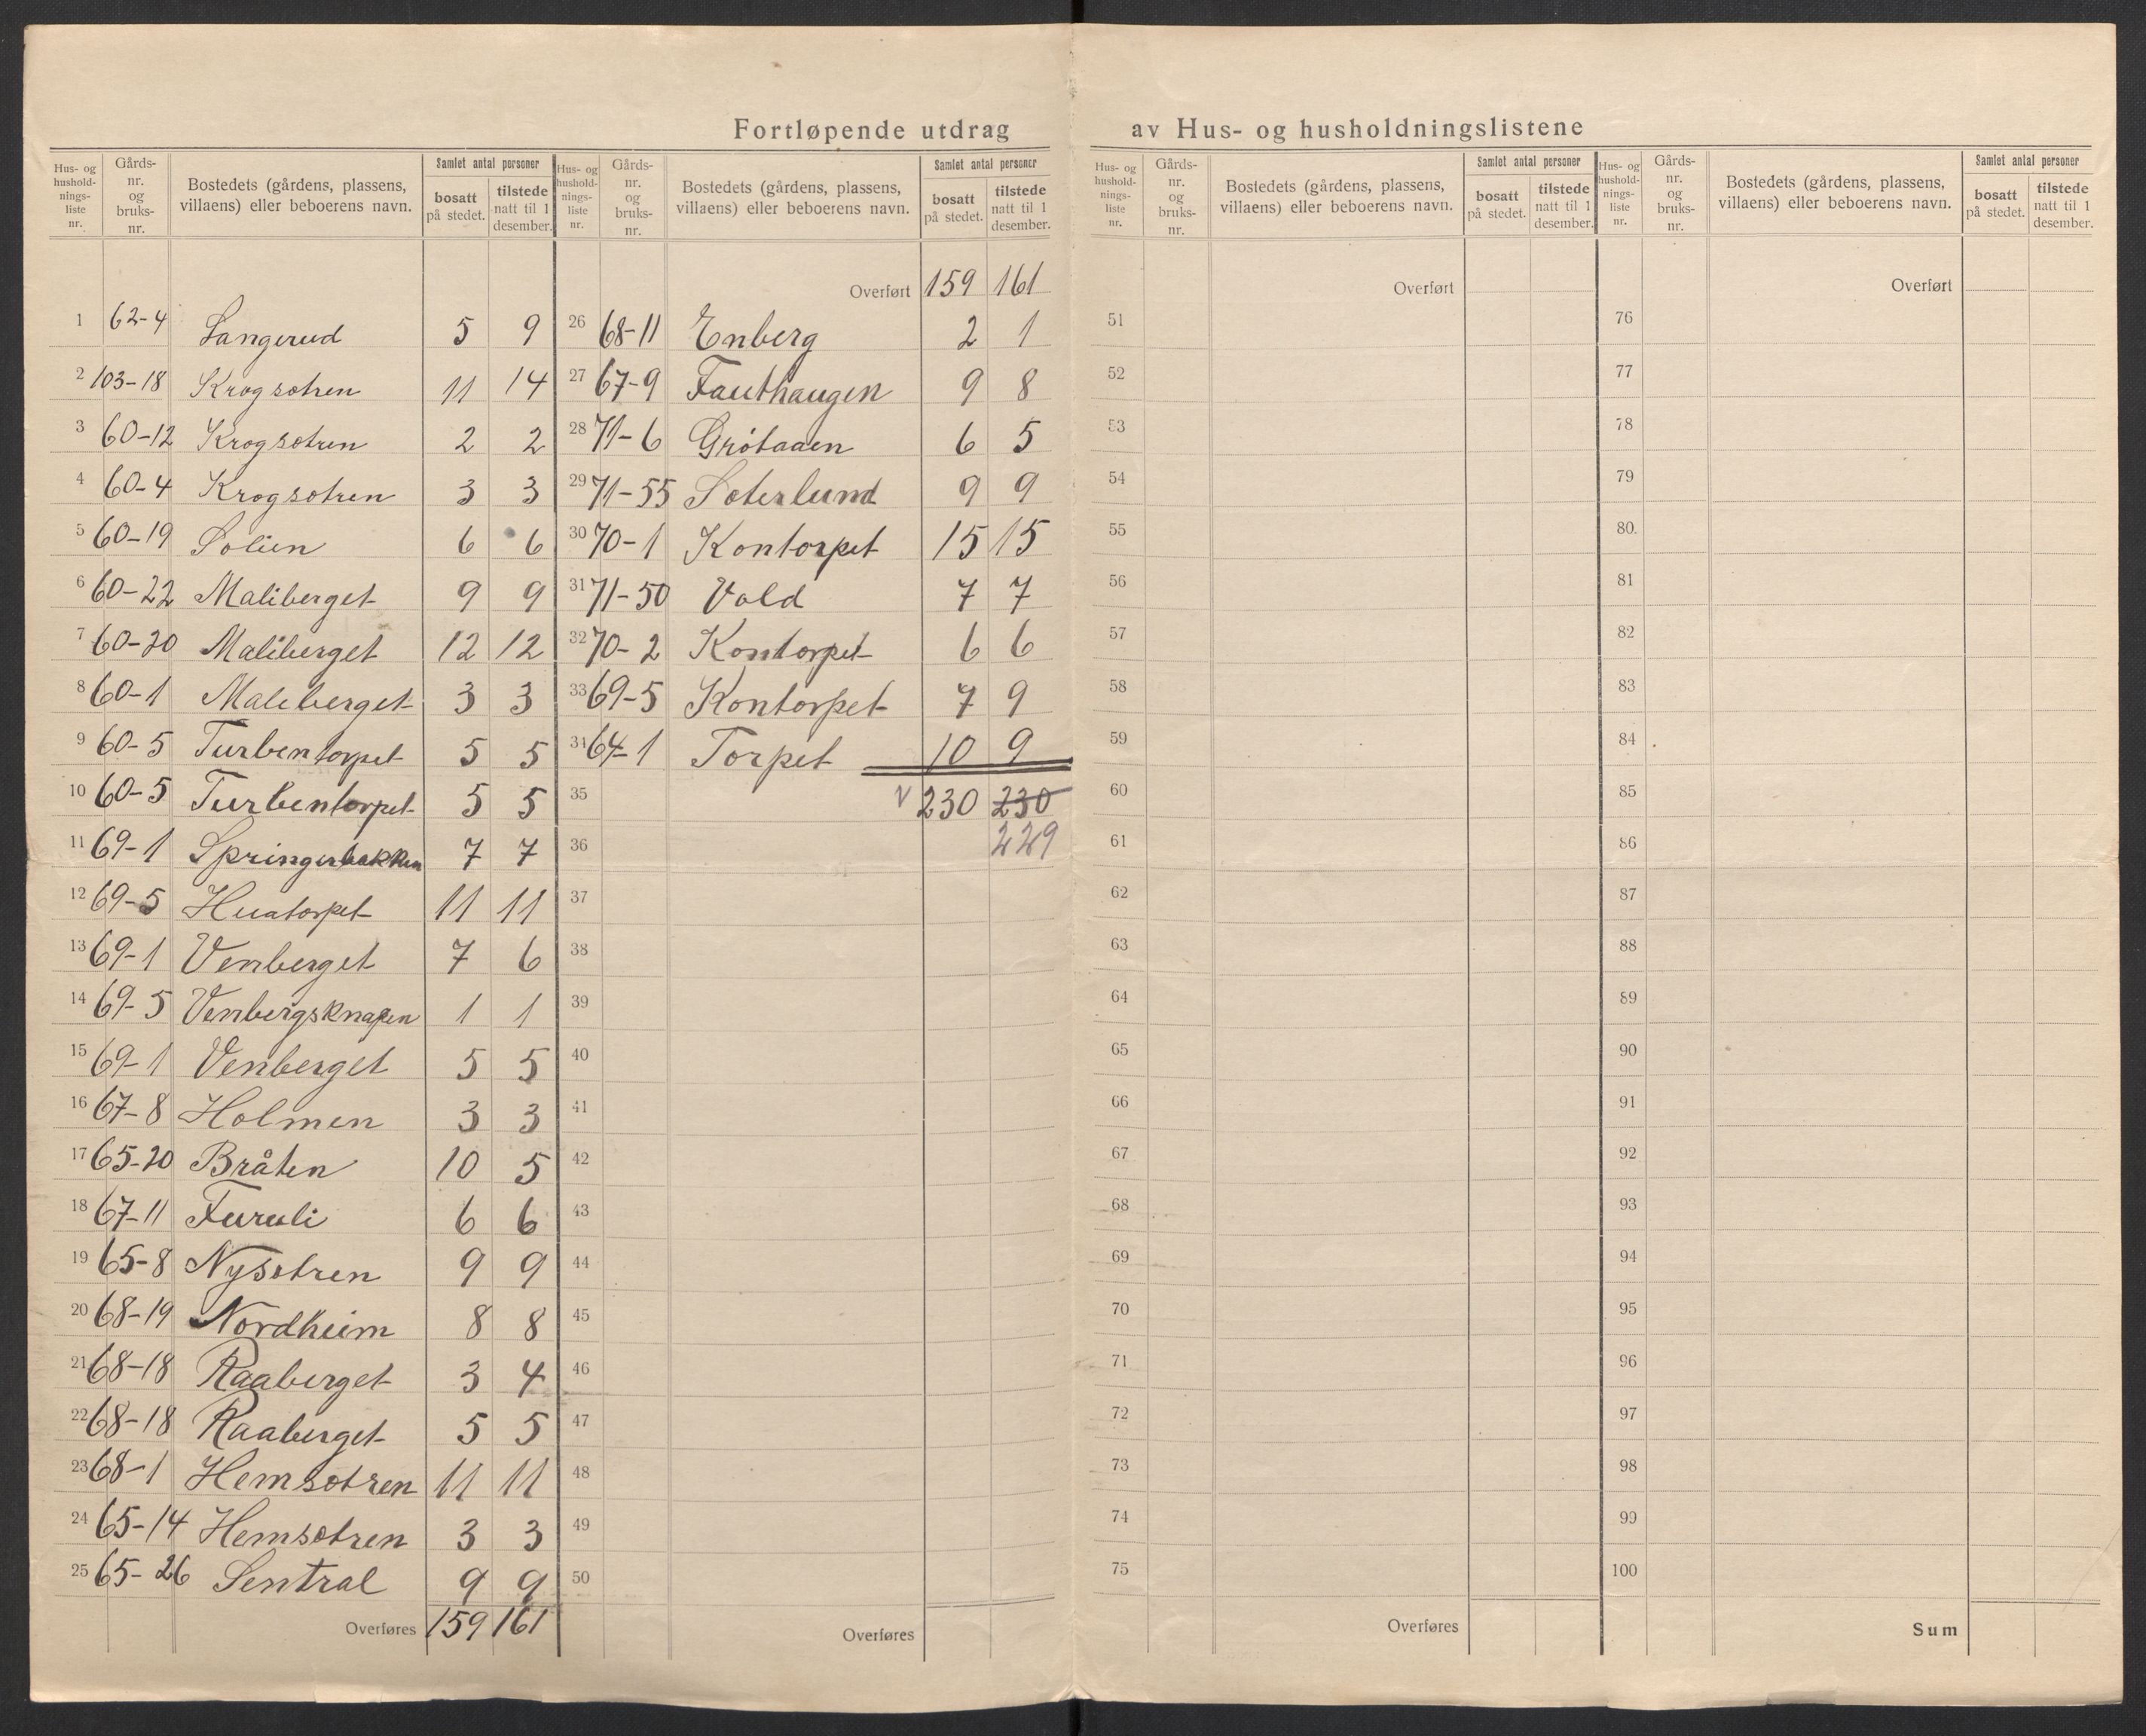 Fortløpende utdrag av Hus- og husholdningslistene
Hus- og hushold-nings-liste nr. Gårds-nr. og bruks-nr. Bostedets (gårdens, plassens, villaens) eller beboerens navn. Samlet antal personer bosatt på stedet. tilstede natt til 1 desember.
1 62-4 Langerud 5 9
2 103-18 Krogsætren 11 14
3 60-12 Krogsætren 2 2
4 60-4 Krogsætren 3 3
5 60-19 Solien 6 6
6 60-22 Maliberget 9 9
7 60-20 Maliberget 12 12
8 60-1 Maliberget 3 3
9 60-5 Turbentorpet 5 5
10 60-5 Turbentorpet 5 5
11 69-1 Springerbakken 7 7
12 69-5 Huatorpet 11 11
13 69-1 Venberget 7 6
14 69-5 Venbergsknapen 1 1
15 69-1 Venberget 5 5
16 67-8 Holmen 3 3
17 65-20 Bråten 10 5
18 67-11 Furuli 6 6
19 65-8 Nysætren 9 9
20 68-19 Nordheim 8 8
21 68-18 Raaberget 3 4
22 68-18 Raaberget 5 5
23 68-1 Hemsætren 11 11
24 65-14 Hemsætren 3 3
25 65-26 Sentral 9 9
Overføres 159 161
Hus- og hushold-nings-liste nr. Gårds-nr. og bruks-nr. Bostedets (gårdens, plassens, villaens) eller beboerens navn. Samlet antal personer bosatt på stedet. tilstede natt til 1 desember.
Overført 159 161
26 68-11 Enberg 2 1
27 67-9 Fauthaugen 9 8
28 71-6 Grötaaen 6 5
29 71-55 Sæterlund 9 9
30 70-1 Kontorpet 15 15
31 71-50 Vold 7 7
32 70-2 Kontorpet 6 6
33 69-5 Kontorpet 7 9
34 64-1 Torpet 10 9
35 230 230
36 229
37
38
39
40
41
42
43
44
45
46
47
48
49
50
Overføres
Hus- og hushold-nings-liste nr. Gårds-nr. og bruks-nr. Bostedets (gårdens, plassens, villaens) eller beboerens navn. Samlet antal personer bosatt på stedet. tilstede natt til 1 desember.
Overført
51
52
53
54
55
56
57
58
59
60
61
62
63
64
65
66
67
68
69
70
71
72
73
74
75
Overføres
Hus- og hushold-nings-liste nr. Gårds-nr. og bruks-nr. Bostedets (gårdens, plassens, villaens) eller beboerens navn. Samlet antal personer bosatt på stedet. tilstede natt til 1 desember.
Overført
76
77
78
79
80.
81
82
83
84
85
86
87
88
89
90
91
92
93
94
95
96
97
98
99
100
Sum